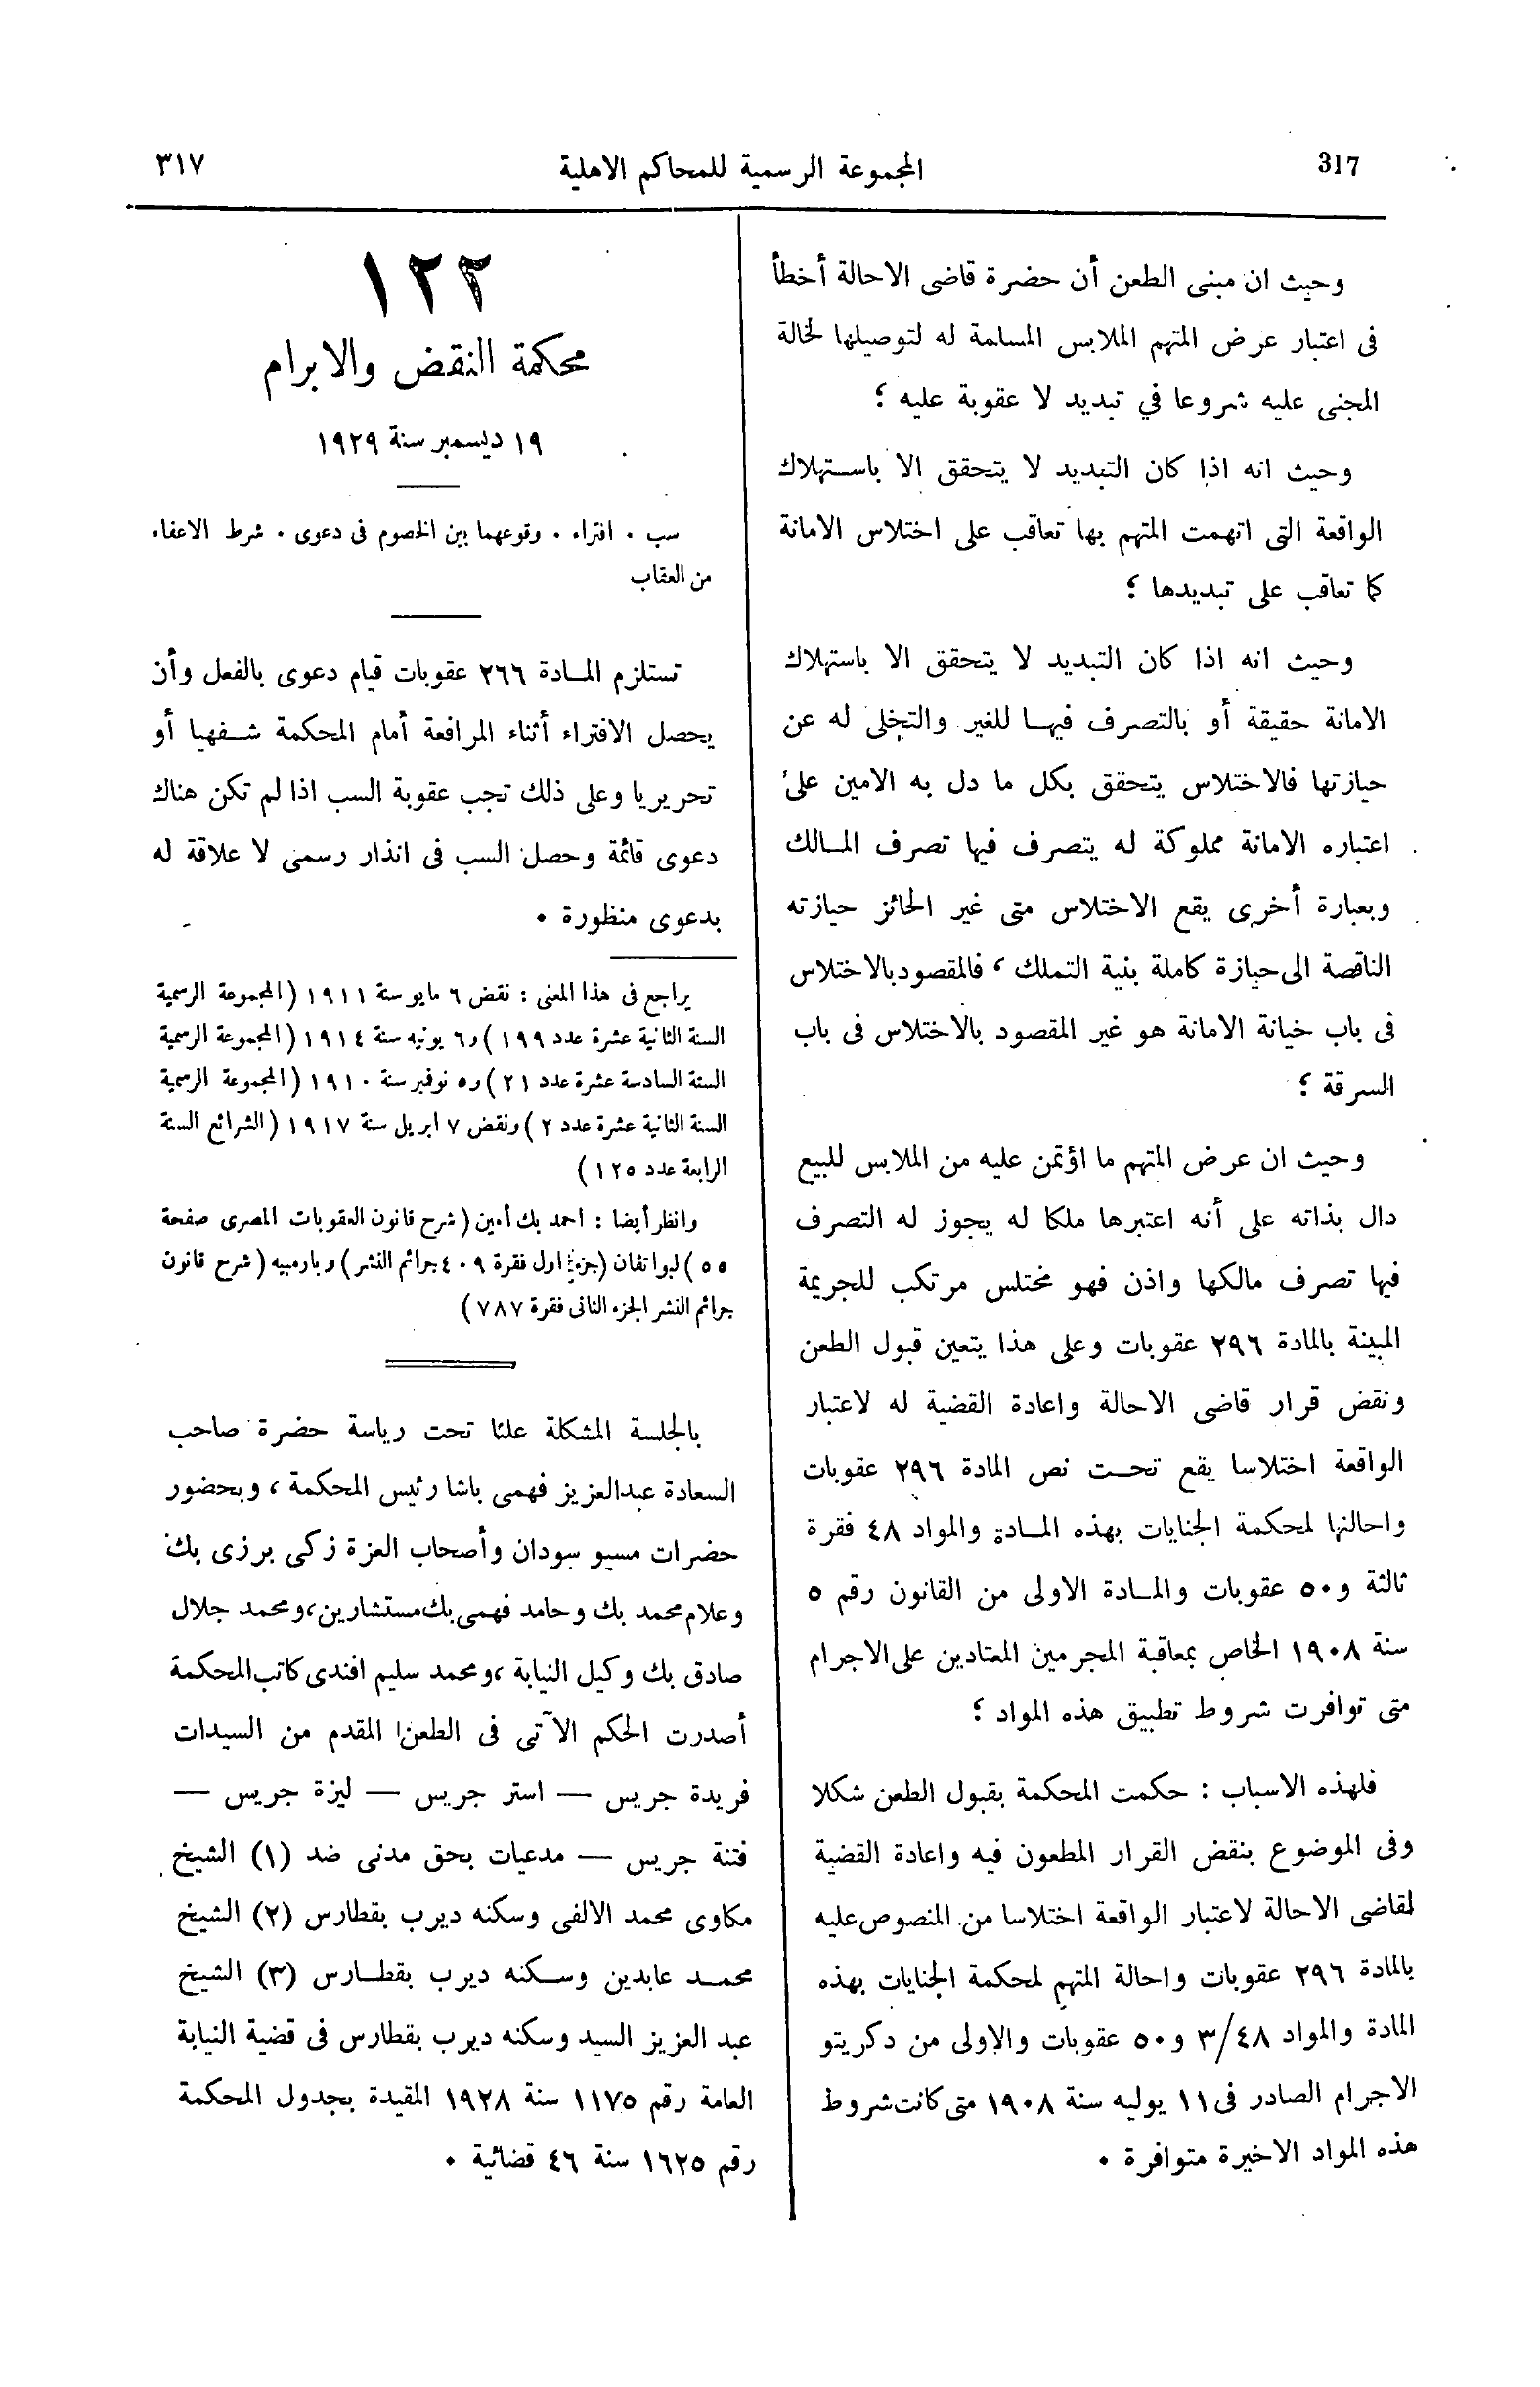 317
المجموعة الرسمية للمحاكم الاهلية
٣١٧
وحيث ان مبنى الطعن أن حضرة قاضى الاحالة أخطأ
فى اعتبار عرض المتهم الملابس المسلمة له لتوصيلها لخالة
المجنى عليه شروعا في تبديد لا عقوبة عليه ؛
وحيث انه اذا كان التبديد لا يتحقق الا باستهلاك
الواقعة التى اتهمت المتهم بها تعاقب على اختلاس الامانة
كما تعاقب على تبديدها ؛
وحيث انه اذا كان التبديد لا يتحقق الا باستهلاك
الامانة حقيقة أو بالتصرف فيها للغير والتخلى له عن
حيازتها فالاختلاس يتحقق بكل ما دل به الامين على
اعتباره الامانة مملوكة له يتصرف فيها تصرف المالك
وبعبارة أخرى يقع الاختلاس متى غير الحائز حيازته
الناقصة الى حيازة كاملة بنية التملك ، فالمقصود بالاختلاس
فى باب خيانة الامانة هو غير المقصود بالاختلاس فى باب
السرقة ؛
وحيث ان عرض المتهم ما اؤتمن عليه من الملابس للبيع
دال بذاته على أنه اعتبرها ملكا له يجوز له التصرف
فيها تصرف مالكها واذن فهو مختلس مرتكب للجريمة
المبينة بالمادة ٢٩٦ عقوبات وعلى هذا يتعين قبول الطعن
ونقض قرار قاضى الاحالة واعادة القضية له لاعتبار
الواقعة اختلاسا يقع تحت نص المادة ٢٩٦ عقوبات
واحالتها لمحكمة الجنايات بهذه المادة والمواد ٤٨ فقرة
ثالثة و٥٠ عقوبات والمادة الاولى من القانون رقم ٥
سنة ١٩٠٨ الخاص بمعاقبة المجرمين المعتادين على الاجرام
متى توافرت شروط تطبيق هذه المواد ؛
فلهذه الاسباب : حكمت المحكمة بقبول الطعن شكلا
وفى الموضوع بنقض القرار المطعون فيه واعادة القضية
لقاضى الاحالة لاعتبار الواقعة اختلاسا من المنصوص عليه
بالمادة ٢٩٦ عقوبات واحالة المتهم لمحكمة الجنايات بهذه
المادة والمواد ٣/٤٨ و٥٠ عقوبات والاولى من دكريتو
الاجرام الصادر فى ١١ يوليه سنة ١٩٠٨ متى كانت شروط
هذه المواد الاخيرة متوافرة ٠
١٢٢
محكمة النقض والابرام
١٩ ديسمبر سنة ١٩٢٩
سب ٠ افتراء ٠ وقوعهما بين الخصوم فى دعوى ٠ شرط الاعفاء
من العقاب
تستلزم المادة ٢٦٦ عقوبات قيام دعوى بالفعل وأن
يحصل الافتراء أثناء المرافعة أمام المحكمة شفهيا أو
تحريريا وعلى ذلك تجب عقوبة السب اذا لم تكن هناك
دعوى قائمة وحصل السب فى انذار رسمى لا علاقة له
بدعوى منظورة ٠
يراجع فى هذا المعنى : نقض ٦ مايو سنة ١٩١١ (المجموعة الرسمية
السنة الثانية عشرة عدد ١٩٩) و٦ يونيه سنة ١٩١٤ (المجموعة الرسمية
السنة السادسة عشرة عدد ٢١) و٥ نوفمبر سنة ١٩١٠ (المجموعة الرسمية
السنة الثانية عشرة عدد ٢) ونقض ٧ ابريل سنة ١٩١٧ (الشرائع السنة
الرابعة عدد ١٢٥)
وانظر أيضا : احمد بك أمين (شرح قانون العقوبات المصرى صفحة
٥٥) ليواتفان (جزء اول فقرة ٤٠٩ جرائم النشر) وبارمبيه (شرح قانون
جرائم النشر الجزء الثانى فقرة ٧٨٧)
بالجلسة المشكلة علنا تحت رياسة حضرة صاحب
السعادة عبدالعزيز فهمى باشا رئيس المحكمة ، وبحضور
حضرات مسيو سودان وأصحاب العزة زكى برزى بك
وعلام محمد بك وحامد فهمى بك مستشارين، ومحمد جلال
صادق بك وكيل النيابة ، ومحمد سليم افندى كاتب المحكمة
أصدرت الحكم الآتى فى الطعن المقدم من السيدات
فريدة جريس — استر جريس — ليزة جريس —
فتنة جريس — مدعيات بحق مدنى ضد (١) الشيخ
مكاوى محمد الالفى وسكنه ديرب بقطارس (٢) الشيخ
محمد عابدين وسكنه ديرب بقطارس (٣) الشيخ
عبد العزيز السيد وسكنه ديرب بقطارس فى قضية النيابة
العامة رقم ١١٧٥ سنة ١٩٢٨ المقيدة بجدول المحكمة
رقم ١٦٢٥ سنة ٤٦ قضائية ٠